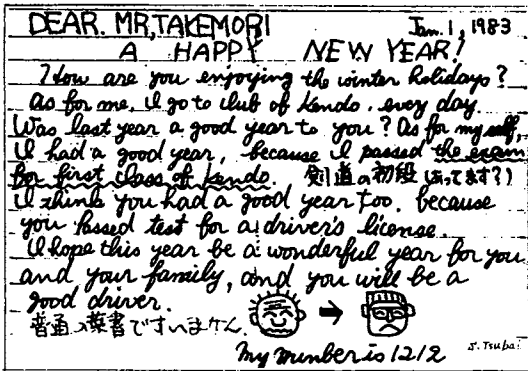 DEAR. MR, TAKEMORI Jan. 1, 1983
A HAPPY NEW YEAR!
How are you enjoying the winter holidays?
As for me, I go to club of Kendo. every day
Was last year a good year to you? As for myself,
I had a good year, because I passed the exam
for first class of kendo. 剣道の初段(あってます?)
I think you had a good year too. because
you passed test for a driver's license.
I hope this year be a wonderful year for you
and your family, and you will be a
good driver.
普通の葉書ですいません.
My number is 1212
J. Tsubai